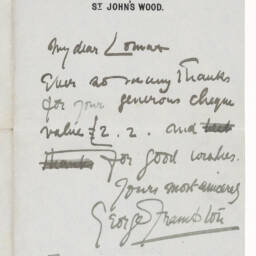 ST JOHN'S WOOD.
My dear Lomax
Ever so many thanks
for your generous cheque
value £2. 2. and
for good wishes.
Yours most sincerely
George Frampton